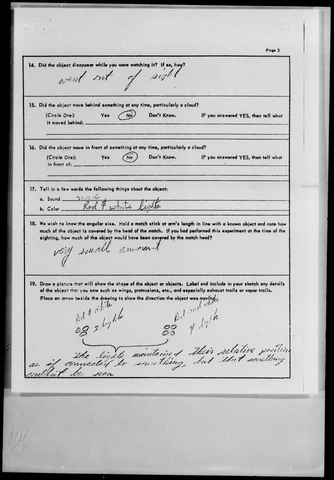 Page 3
14. Did the object disappear while you were watching it? If so, how?
went out of sight
15. Did the object move behind something at any time, particularly a cloud?
(Circle One): Yes No Don't Know. IF you answered YES, then tell what
it moved behind:
16. Did the object move in front of something at any time, particularly a cloud?
(Circle One): Yes No Don't Know. IF you answered YES, then tell what
in front of:
17. Tell in a few words the following things about the object:
a. Sound none
b. Color Red & white lights
18. We wish to know the angular size. Hold a match stick at arm's length in line with a known object and note how
much of the object is covered by the head of the match. If you had performed this experiment at the time of the
sighting, how much of the object would have been covered by the match head?
very small amount
19. Draw a picture that will show the shape of the object or objects. Label and include in your sketch any details
of the object that you saw such as wings, protrusions, etc., and especially exhaust trails or vapor trails.
Place an arrow beside the drawing to show the direction the object was moving.
Red & white
lights
Red and white
4 lights
the lights maintained their relative positions
as if connected to something but that something
couldn't be seen